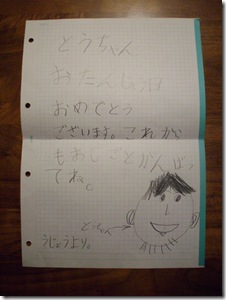 とうちゃん
おたんじょう日
おめでとう
ございます。これから
もおしごとがんばっ
てね。
とうちゃん
うじょうより。